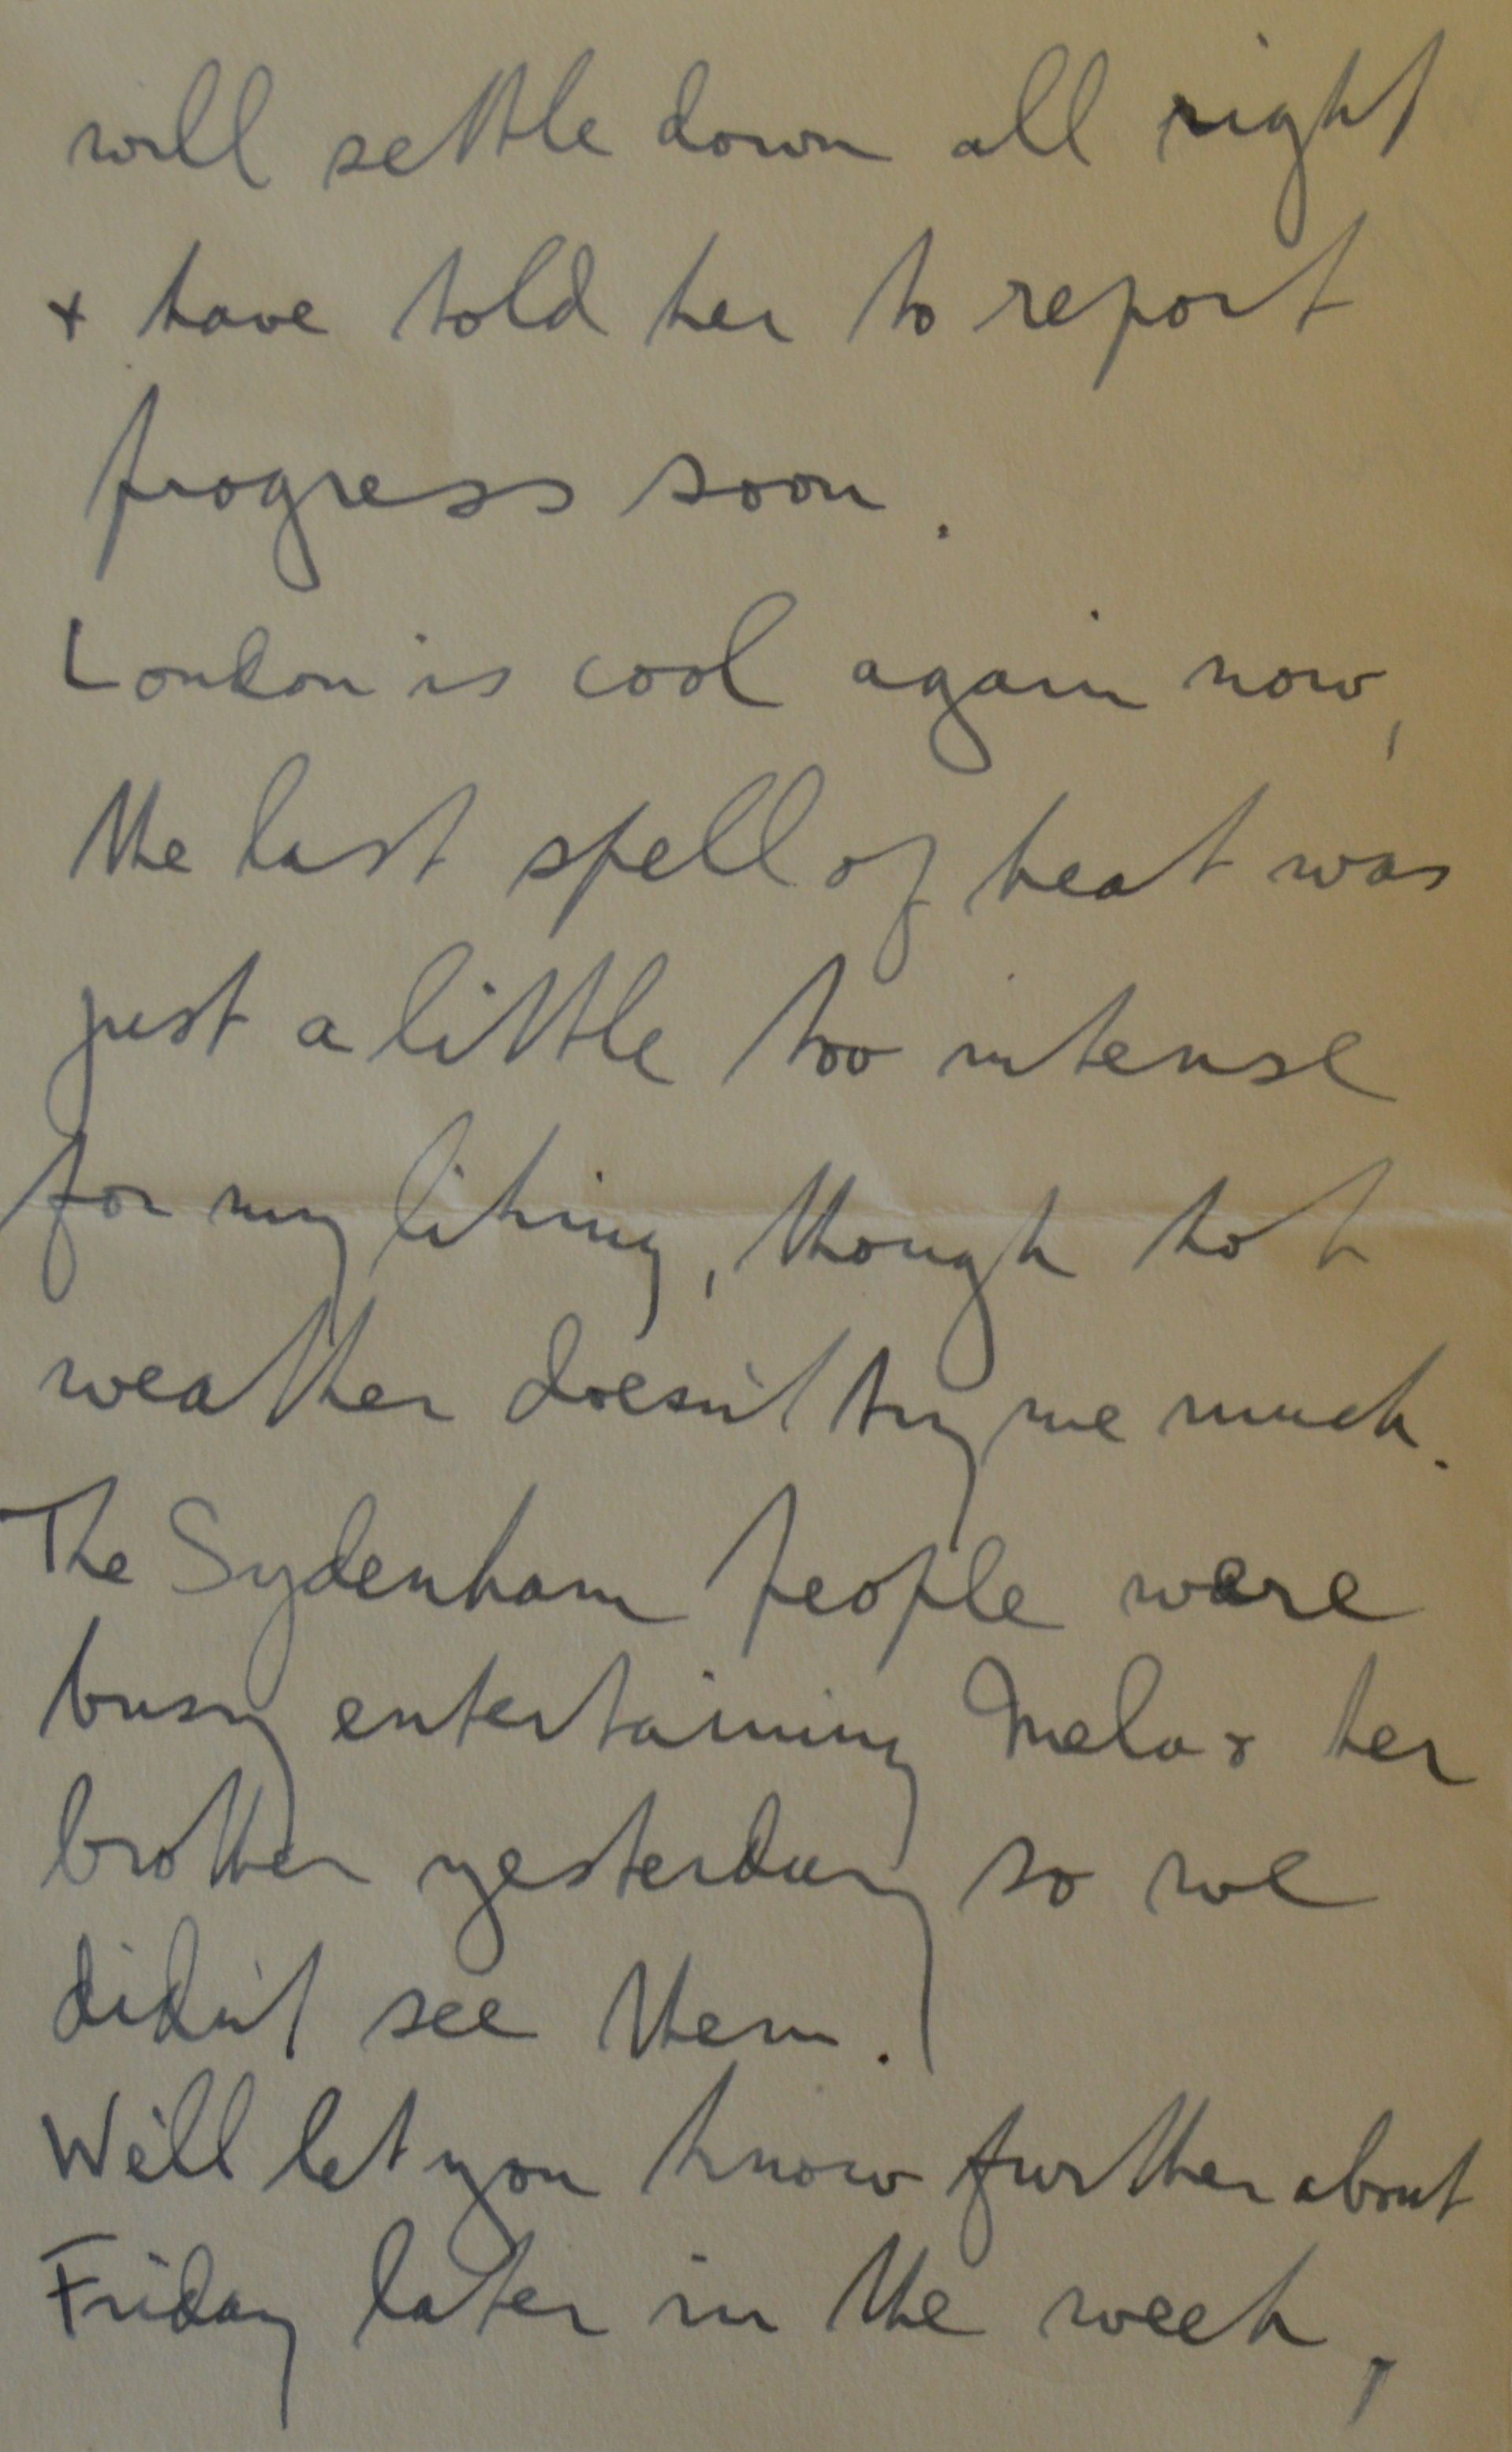 will settle down all right
+ have told her to report
progress soon.
London is cool again now,
the last spell of heat was
just a little too intense
for my liking, though hot
weather doesn't try me much.
The Sydenham people were
busy entertaining Mela + her
brother yesterday so we
didn't see them.
We'll let you know further about
Friday later in the week,